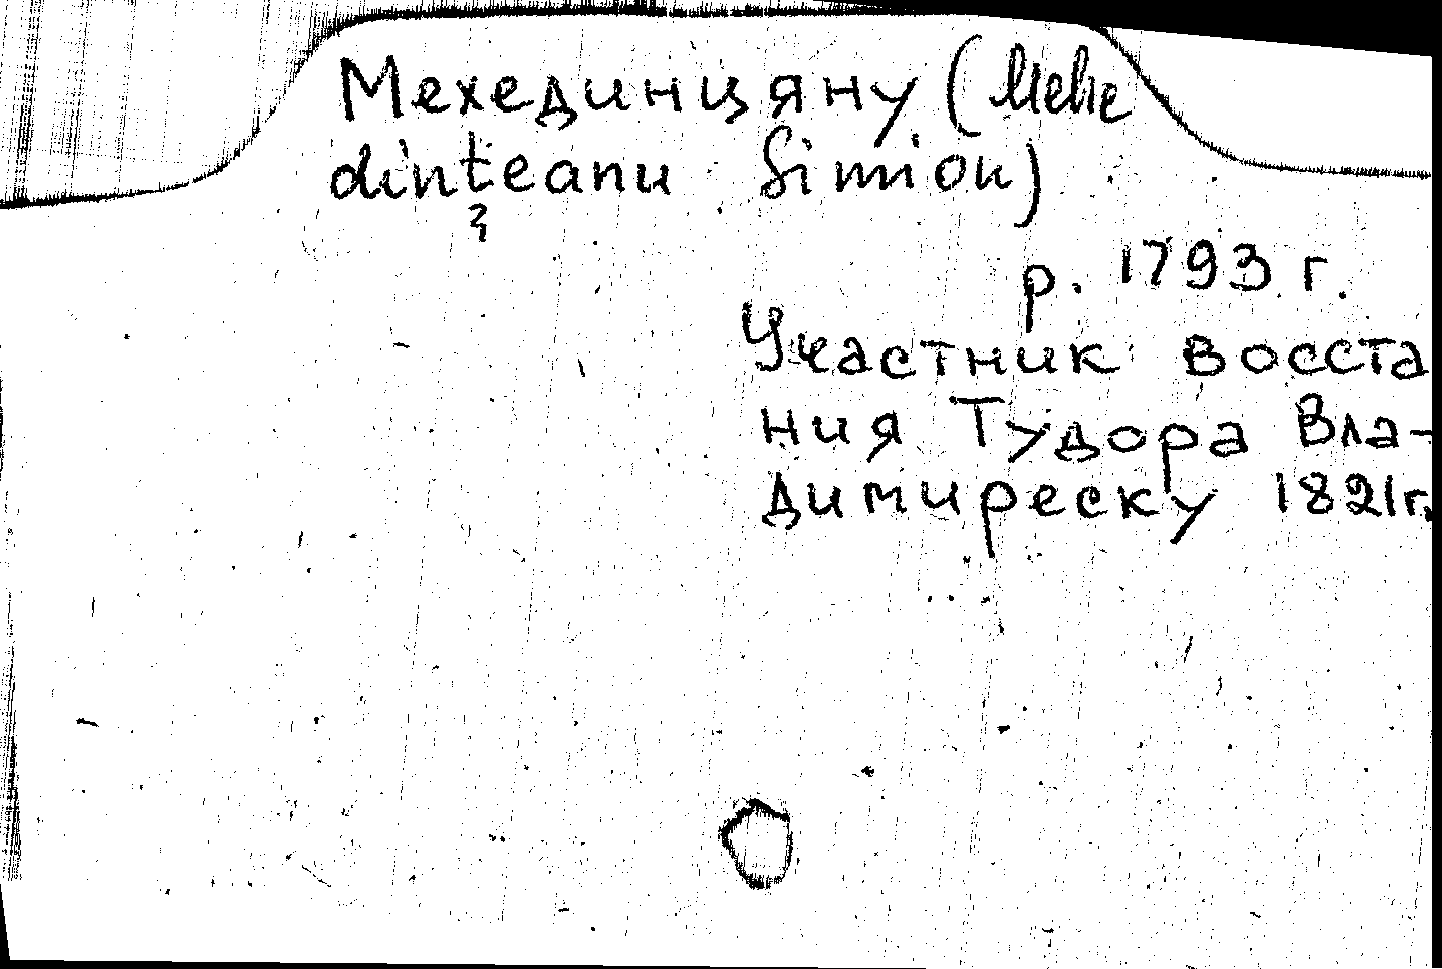 Мехединцяну (Mehe
dinţeanu Simion)
р. 1793 г.
Участник восста
ния Тудора Вла-
димиреску 1821г.